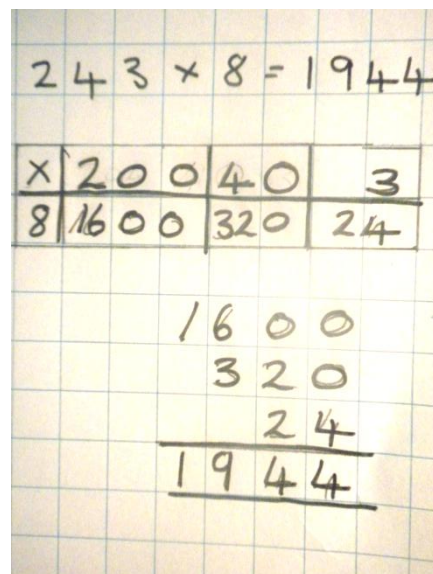 243 × 8 = 1944
× 200 40 3
8 1600 320 24
1600
320
24
1944